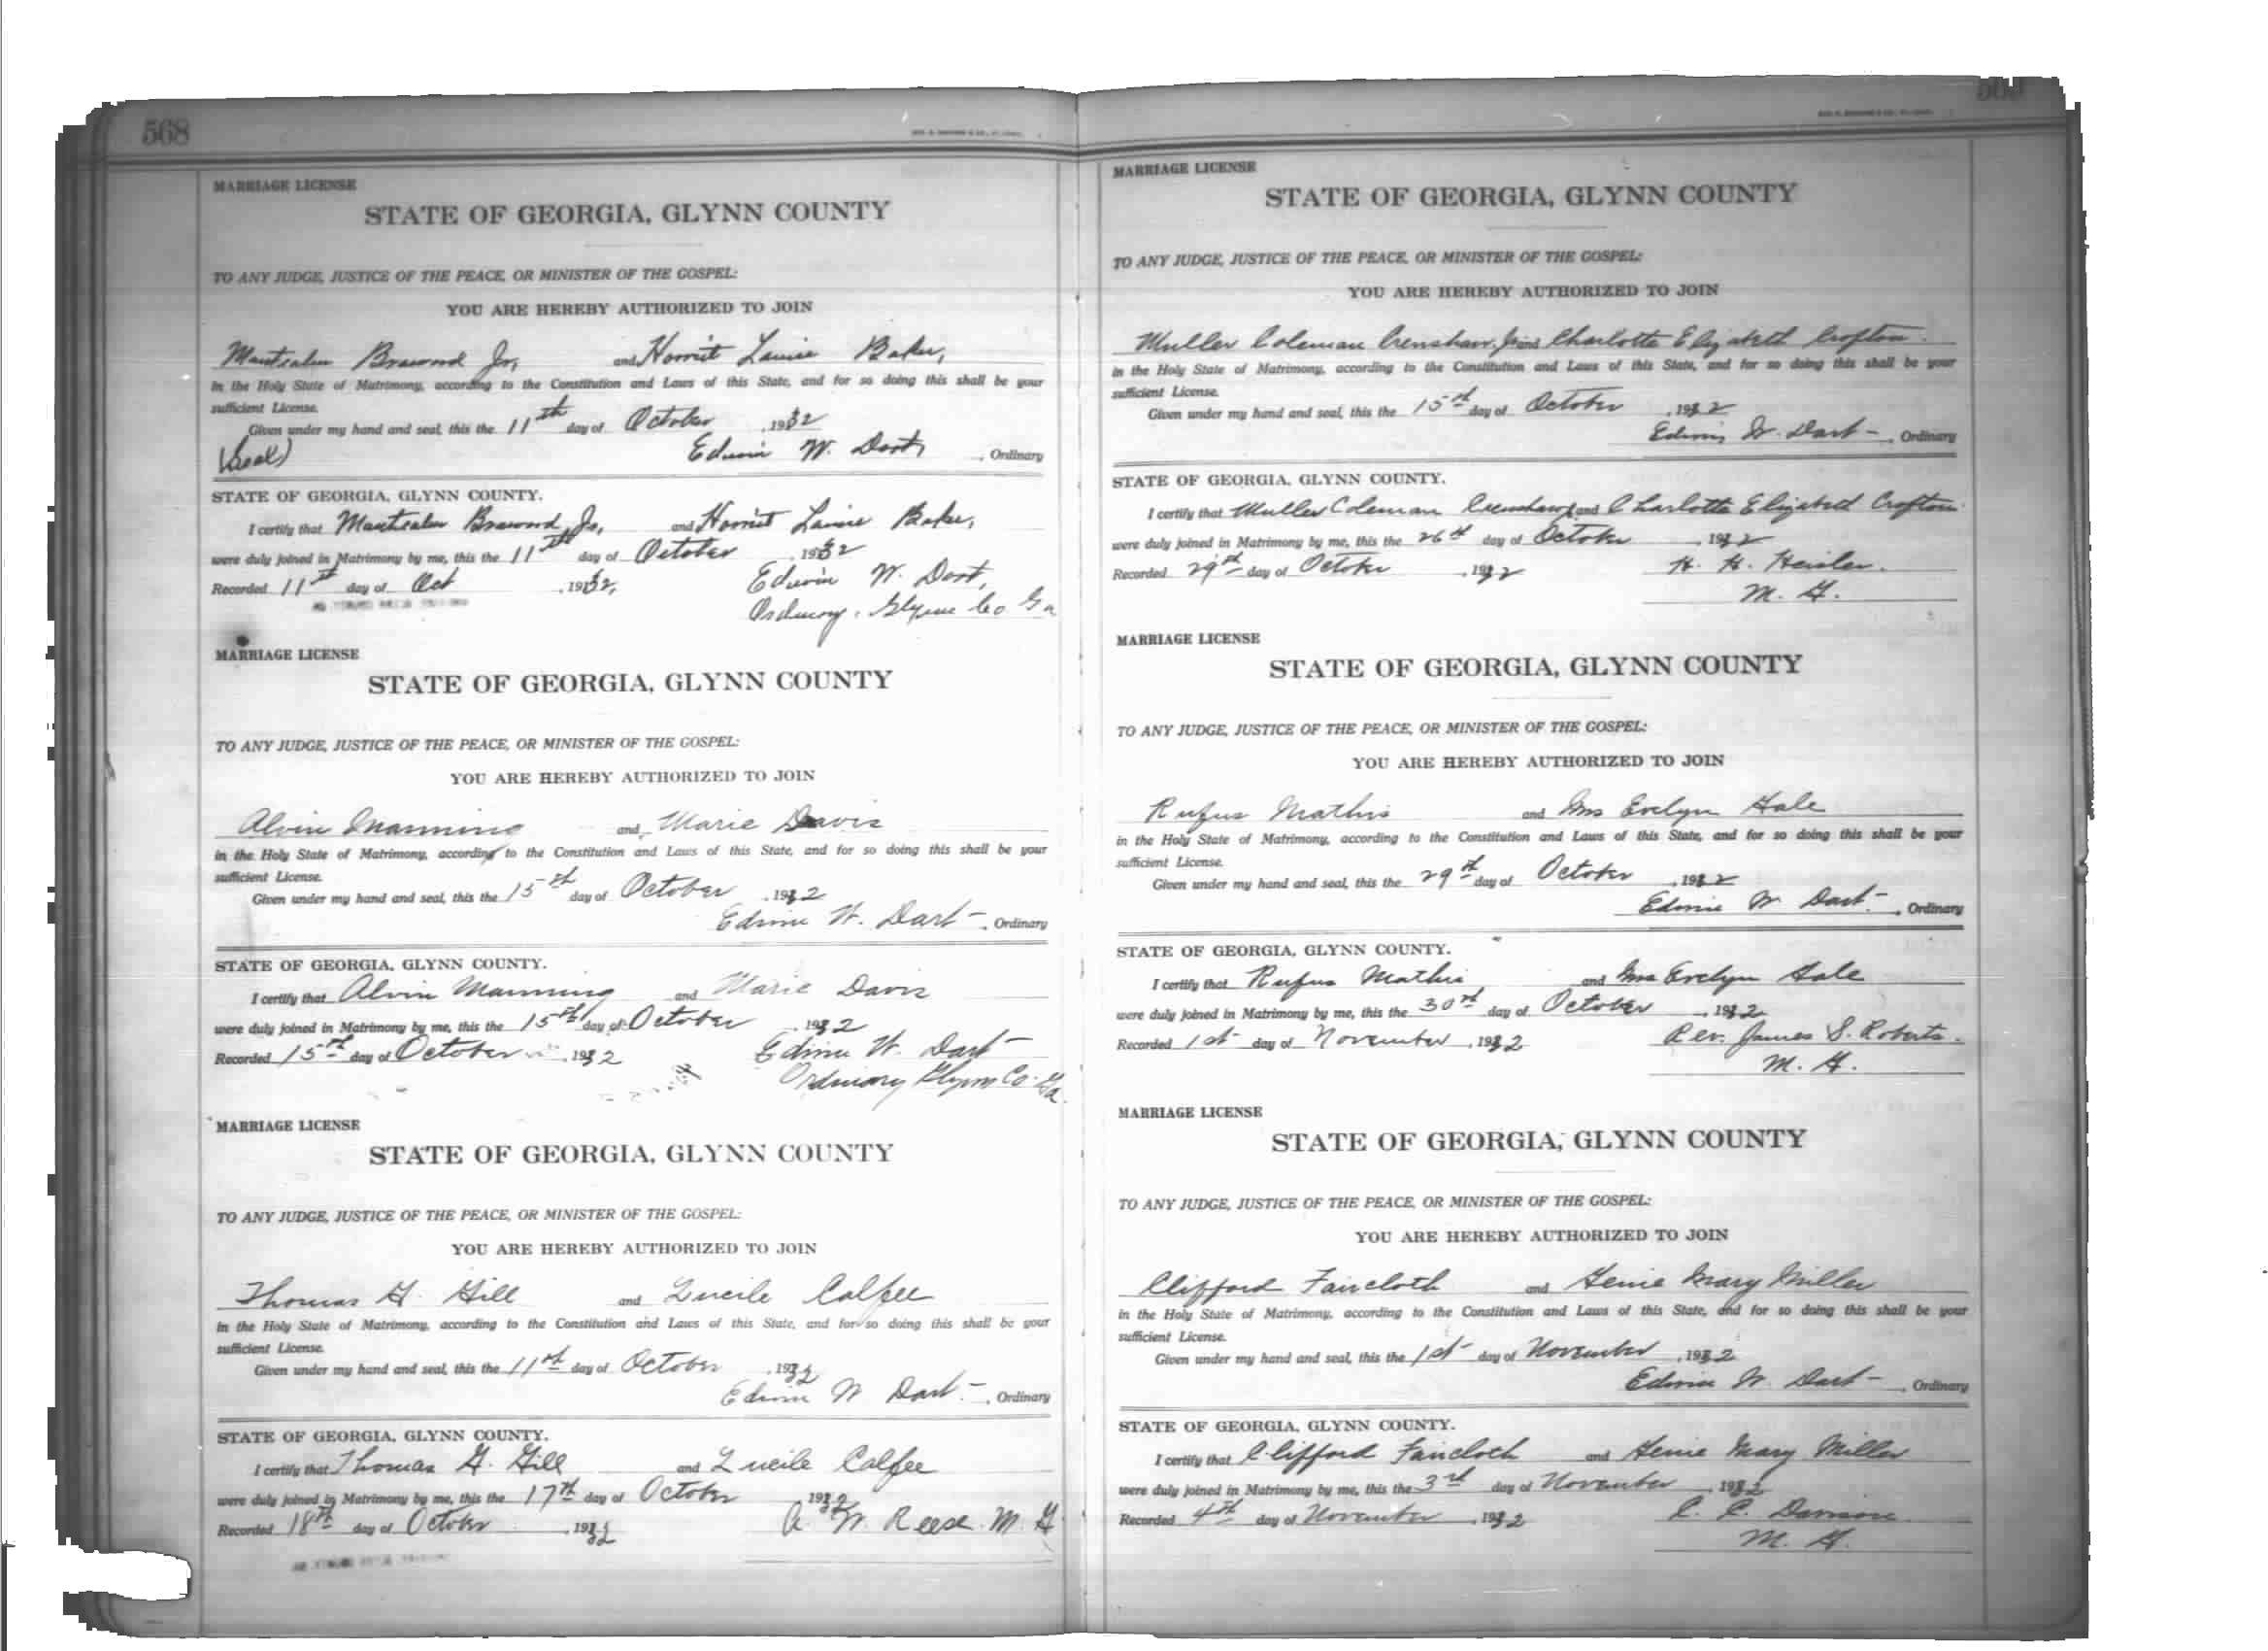 568
MARRIAGE LICENSE
STATE OF GEORGIA, GLYNN COUNTY
TO ANY JUDGE, JUSTICE OF THE PEACE, OR MINISTER OF THE GOSPEL:
YOU ARE HEREBY AUTHORIZED TO JOIN
Jr, and Harriet Louise Baker,
in the Holy State of Matrimony, according to the Constitution and Laws of this State, and for so doing this shall be your
sufficient License.
Given under my hand and seal, this the 11th day of October, 1932
(Seal) Edwin W. Dart, Ordinary
STATE OF GEORGIA, GLYNN COUNTY.
I certify that Jr, and Harriet Louise Baker,
were duly joined in Matrimony by me, this the 11th day of October, 1932
Recorded 11th day of Oct, 1932, Edwin W. Dart,
Ordinary, Glynn Co Ga
MARRIAGE LICENSE
STATE OF GEORGIA, GLYNN COUNTY
TO ANY JUDGE, JUSTICE OF THE PEACE, OR MINISTER OF THE GOSPEL:
YOU ARE HEREBY AUTHORIZED TO JOIN
Alvin Manning and Marie Davis
in the Holy State of Matrimony, according to the Constitution and Laws of this State, and for so doing this shall be your
sufficient License.
Given under my hand and seal, this the 15th day of October, 1932
Edwin W. Dart, Ordinary
STATE OF GEORGIA, GLYNN COUNTY.
I certify that Alvin Manning and Marie Davis
were duly joined in Matrimony by me, this the 15th day of October, 1932
Recorded 15th day of October, 1932 Edwin W. Dart
Ordinary Glynn Co. Ga.
MARRIAGE LICENSE
STATE OF GEORGIA, GLYNN COUNTY
TO ANY JUDGE, JUSTICE OF THE PEACE, OR MINISTER OF THE GOSPEL:
YOU ARE HEREBY AUTHORIZED TO JOIN
Thomas G. Gill and Lucile Calfee
in the Holy State of Matrimony, according to the Constitution and Laws of this State, and for so doing this shall be your
sufficient License.
Given under my hand and seal, this the 11th day of October, 1932
Edwin W Dart, Ordinary
STATE OF GEORGIA, GLYNN COUNTY.
I certify that Thomas G. Gill and Lucile Calfee
were duly joined in Matrimony by me, this the 17th day of October, 1932
Recorded 18th day of October, 1932 A. W. Reese M. G
MARRIAGE LICENSE
STATE OF GEORGIA, GLYNN COUNTY
TO ANY JUDGE, JUSTICE OF THE PEACE, OR MINISTER OF THE GOSPEL:
YOU ARE HEREBY AUTHORIZED TO JOIN
Muller Coleman Crenshaw, Jr and Charlotte Elizabeth Crofton
in the Holy State of Matrimony, according to the Constitution and Laws of this State, and for so doing this shall be your
sufficient License.
Given under my hand and seal, this the 15th day of October, 1932
Edwin W. Dart, Ordinary
STATE OF GEORGIA, GLYNN COUNTY.
I certify that Muller Coleman Crenshaw Jr and Charlotte Elizabeth Crofton
were duly joined in Matrimony by me, this the 26th day of October, 1932
Recorded 29th day of October, 1932 H. H. Heisler.
M. G.
MARRIAGE LICENSE
STATE OF GEORGIA, GLYNN COUNTY
TO ANY JUDGE, JUSTICE OF THE PEACE, OR MINISTER OF THE GOSPEL:
YOU ARE HEREBY AUTHORIZED TO JOIN
Rufus Mathis and Mrs Evelyn Hale
in the Holy State of Matrimony, according to the Constitution and Laws of this State, and for so doing this shall be your
sufficient License.
Given under my hand and seal, this the 29th day of October, 1932
Edwin W Dart, Ordinary
STATE OF GEORGIA, GLYNN COUNTY.
I certify that Rufus Mathis and Mrs Evelyn Hale
were duly joined in Matrimony by me, this the 30th day of October, 1932
Recorded 1st day of November, 1932 Rev. James S. Roberts.
M. G.
MARRIAGE LICENSE
STATE OF GEORGIA, GLYNN COUNTY
TO ANY JUDGE, JUSTICE OF THE PEACE, OR MINISTER OF THE GOSPEL:
YOU ARE HEREBY AUTHORIZED TO JOIN
Clifford Faircloth and Genie Mary Miller
in the Holy State of Matrimony, according to the Constitution and Laws of this State, and for so doing this shall be your
sufficient License.
Given under my hand and seal, this the 1st day of November, 1932
Edwin W. Dart, Ordinary
STATE OF GEORGIA, GLYNN COUNTY.
I certify that Clifford Faircloth and Genie Mary Miller
were duly joined in Matrimony by me, this the 3rd day of November, 1932
Recorded 4th day of November, 1932 C. C.
M. G.